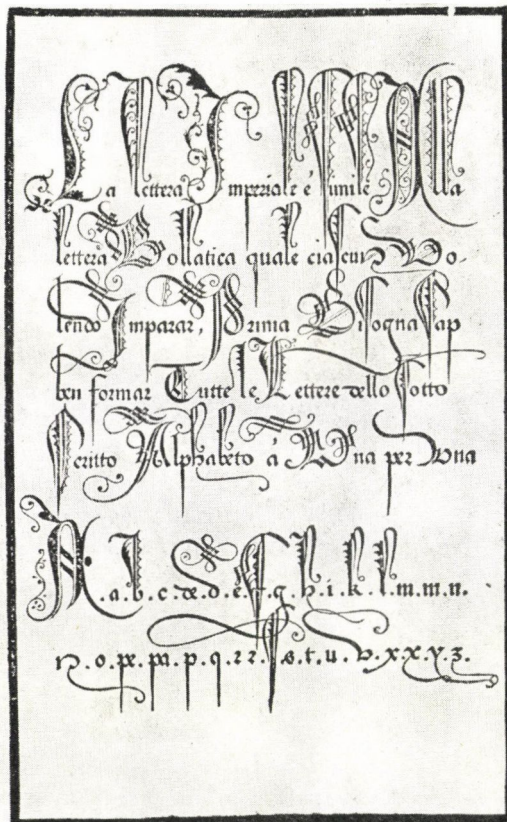 La lettera Imperiale é simile Alla
lettera Bollatica quale ciascun Vo-
lendo Imparar, Prima Bisogna sap
ben formar Tutte le Lettere dello sotto
scritto Alphabeto á Una per Una
A.a.b.c.d.d.e.f.g.h.i.k.l.m.m.n.
n.o.p.q.r.z.ſ.s.t.u.v.x.x.y.z.